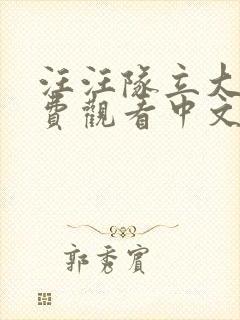 汪汪隊立大
費觀看中文
郭秀賓